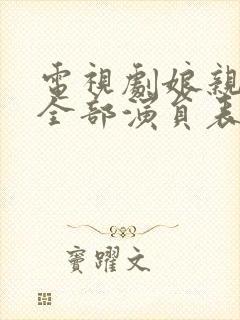 電視劇娘親
全部演員表
竇躍文